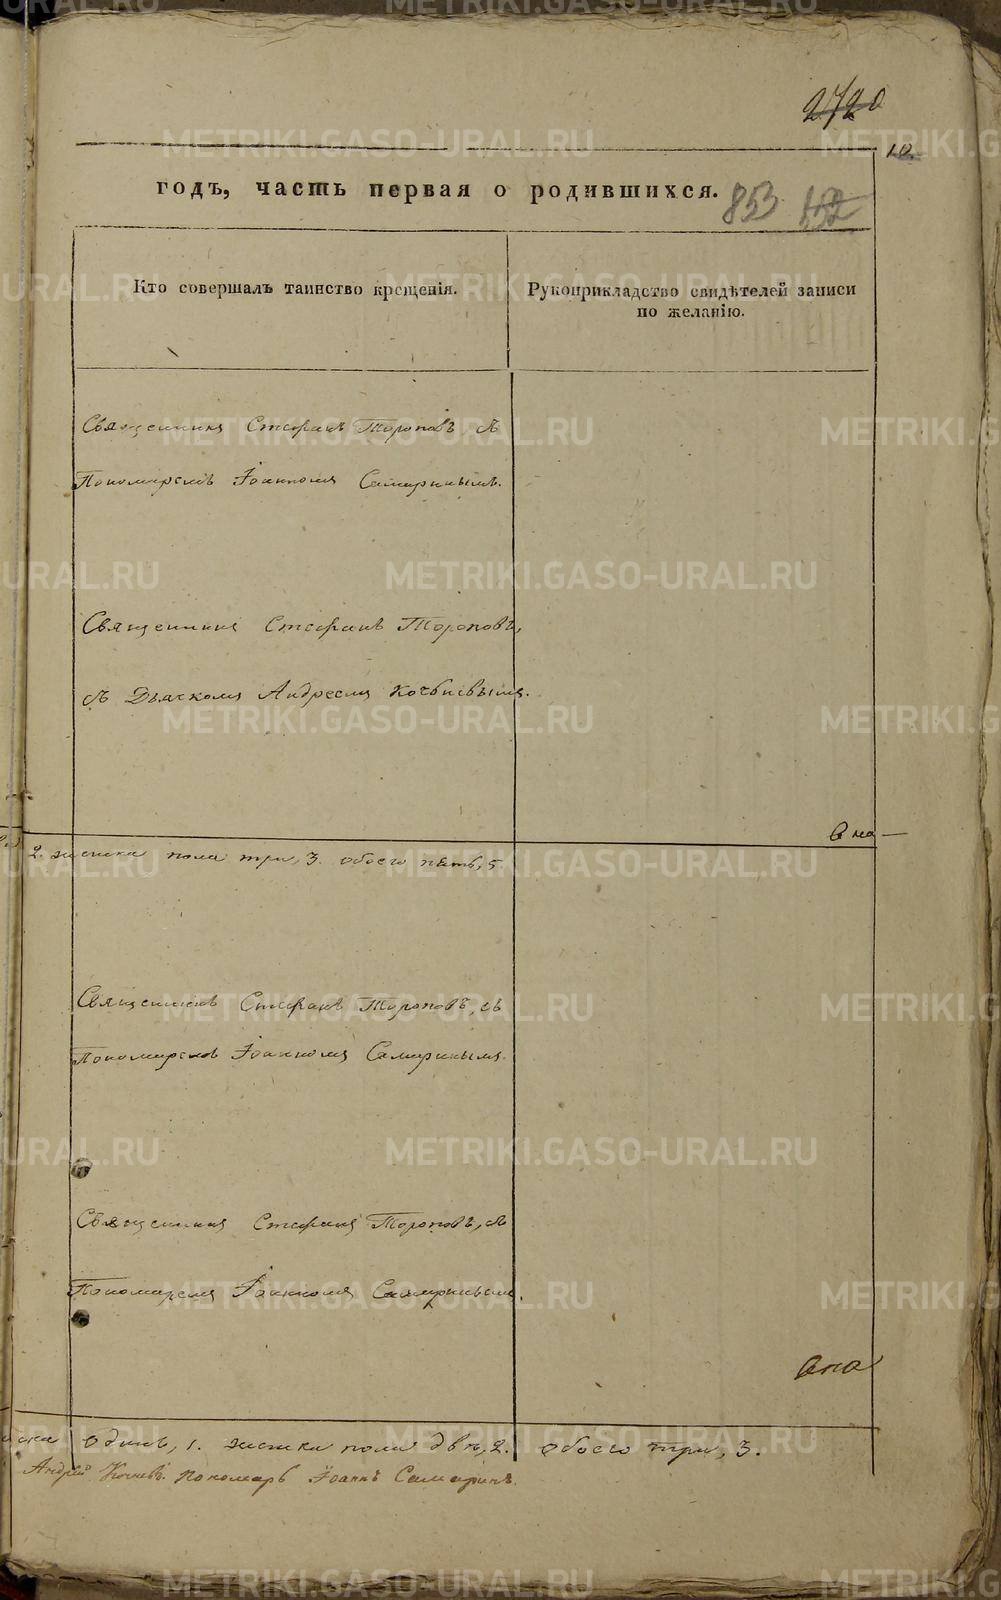 10.
годъ, часть первая о родившихся. 853
Кто совершалъ таинство крещенія.
Рукоприкладство свидѣтелей записи
по желанію.
Священникъ Стефанъ Тороповъ, съ
Пономаремъ Іоанномъ Самаринымъ.
Священникъ Стефанъ Тороповъ,
съ Дьячкомъ Андреемъ
2. женска пола три, 3. обоего пять, 5.
Священникъ Стефанъ Тороповъ, съ
Пономаремъ Іоанномъ Самаринымъ.
Священникъ Стефанъ Тороповъ, съ
Пономаремъ Іоанномъ Самаринымъ.
одинъ, 1. женска пола двѣ, 2. обоего три, 3.
Андрей Пономарь Іоаннъ Самаринъ.
METRIKI.GASO-URAL.RU